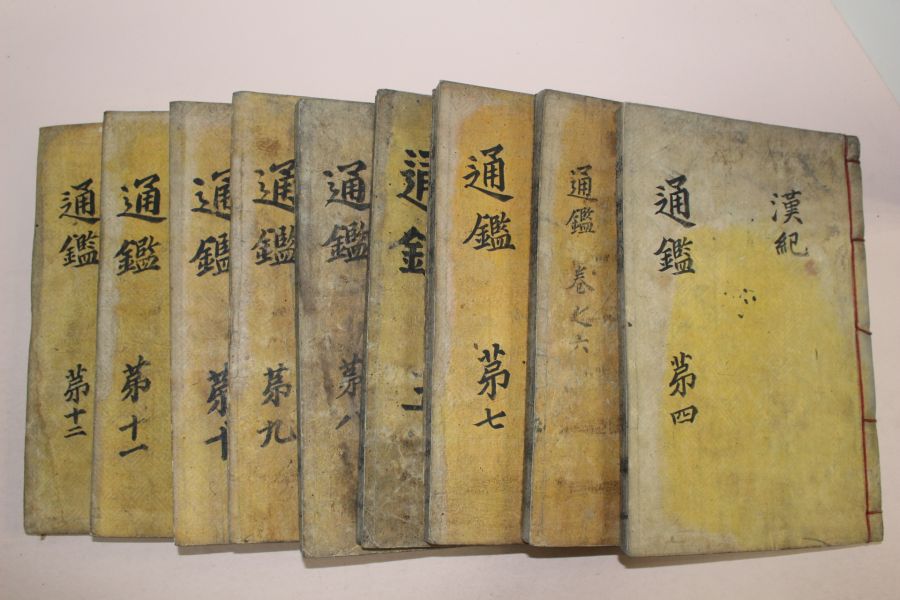 漢紀
通鑑
第四
通鑑 卷之六
通鑑
第七
通鑑
通鑑
第八
通鑑
第九
通鑑
第十
通鑑
第十一
通鑑
第十二